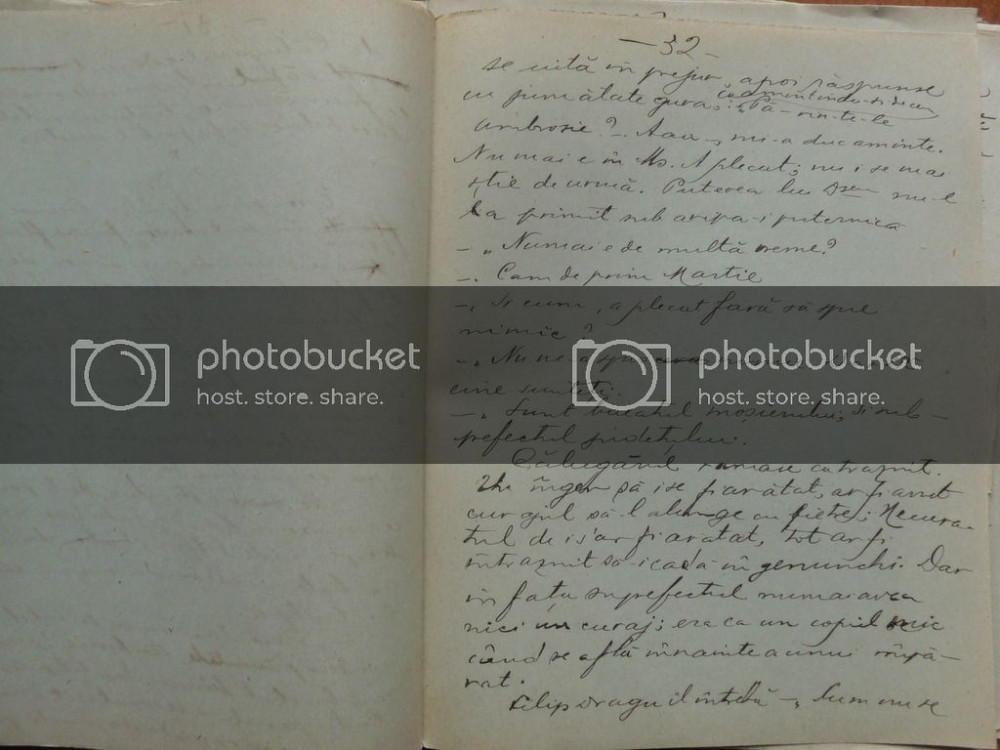 — 32 —
se uită în prejur, apoi răspunse
cu jumătate gura: „Pă-rin-te-le
Ambrosie? — Aaa, mi-a duc aminte.
Nu mai e în Ms. A plecat; nu i se mai
știe de urmă. Puterea lui Dzeu
primit sub aripa-i puternica
— „Numai e de multă vreme?
—. Cam de prin Martie
—, Și cum, a plecat fară să spue
nimic?
—. Nu ne-a spus
cine sunteți.
—. Sunt băeatul moșierului; și sub-
prefectul județului.
Călugărul rămase cutrăznit.
Un înger să i se fi arătat, ar fi avut
curajul să-l alunge cu pietre; Necura-
tul de i s'ar fi aratat, tot ar fi
întraznit să-i cadă în genunchi. Dar
în fața suprefectul numai avea
nici un curaj; era ca un copil mic
când se află înnainte a unui împă-
rat.
Filip Dragu îl întrebă —, Cum nu se
photobucket
host. store. share.
photobucket
host. store. share.